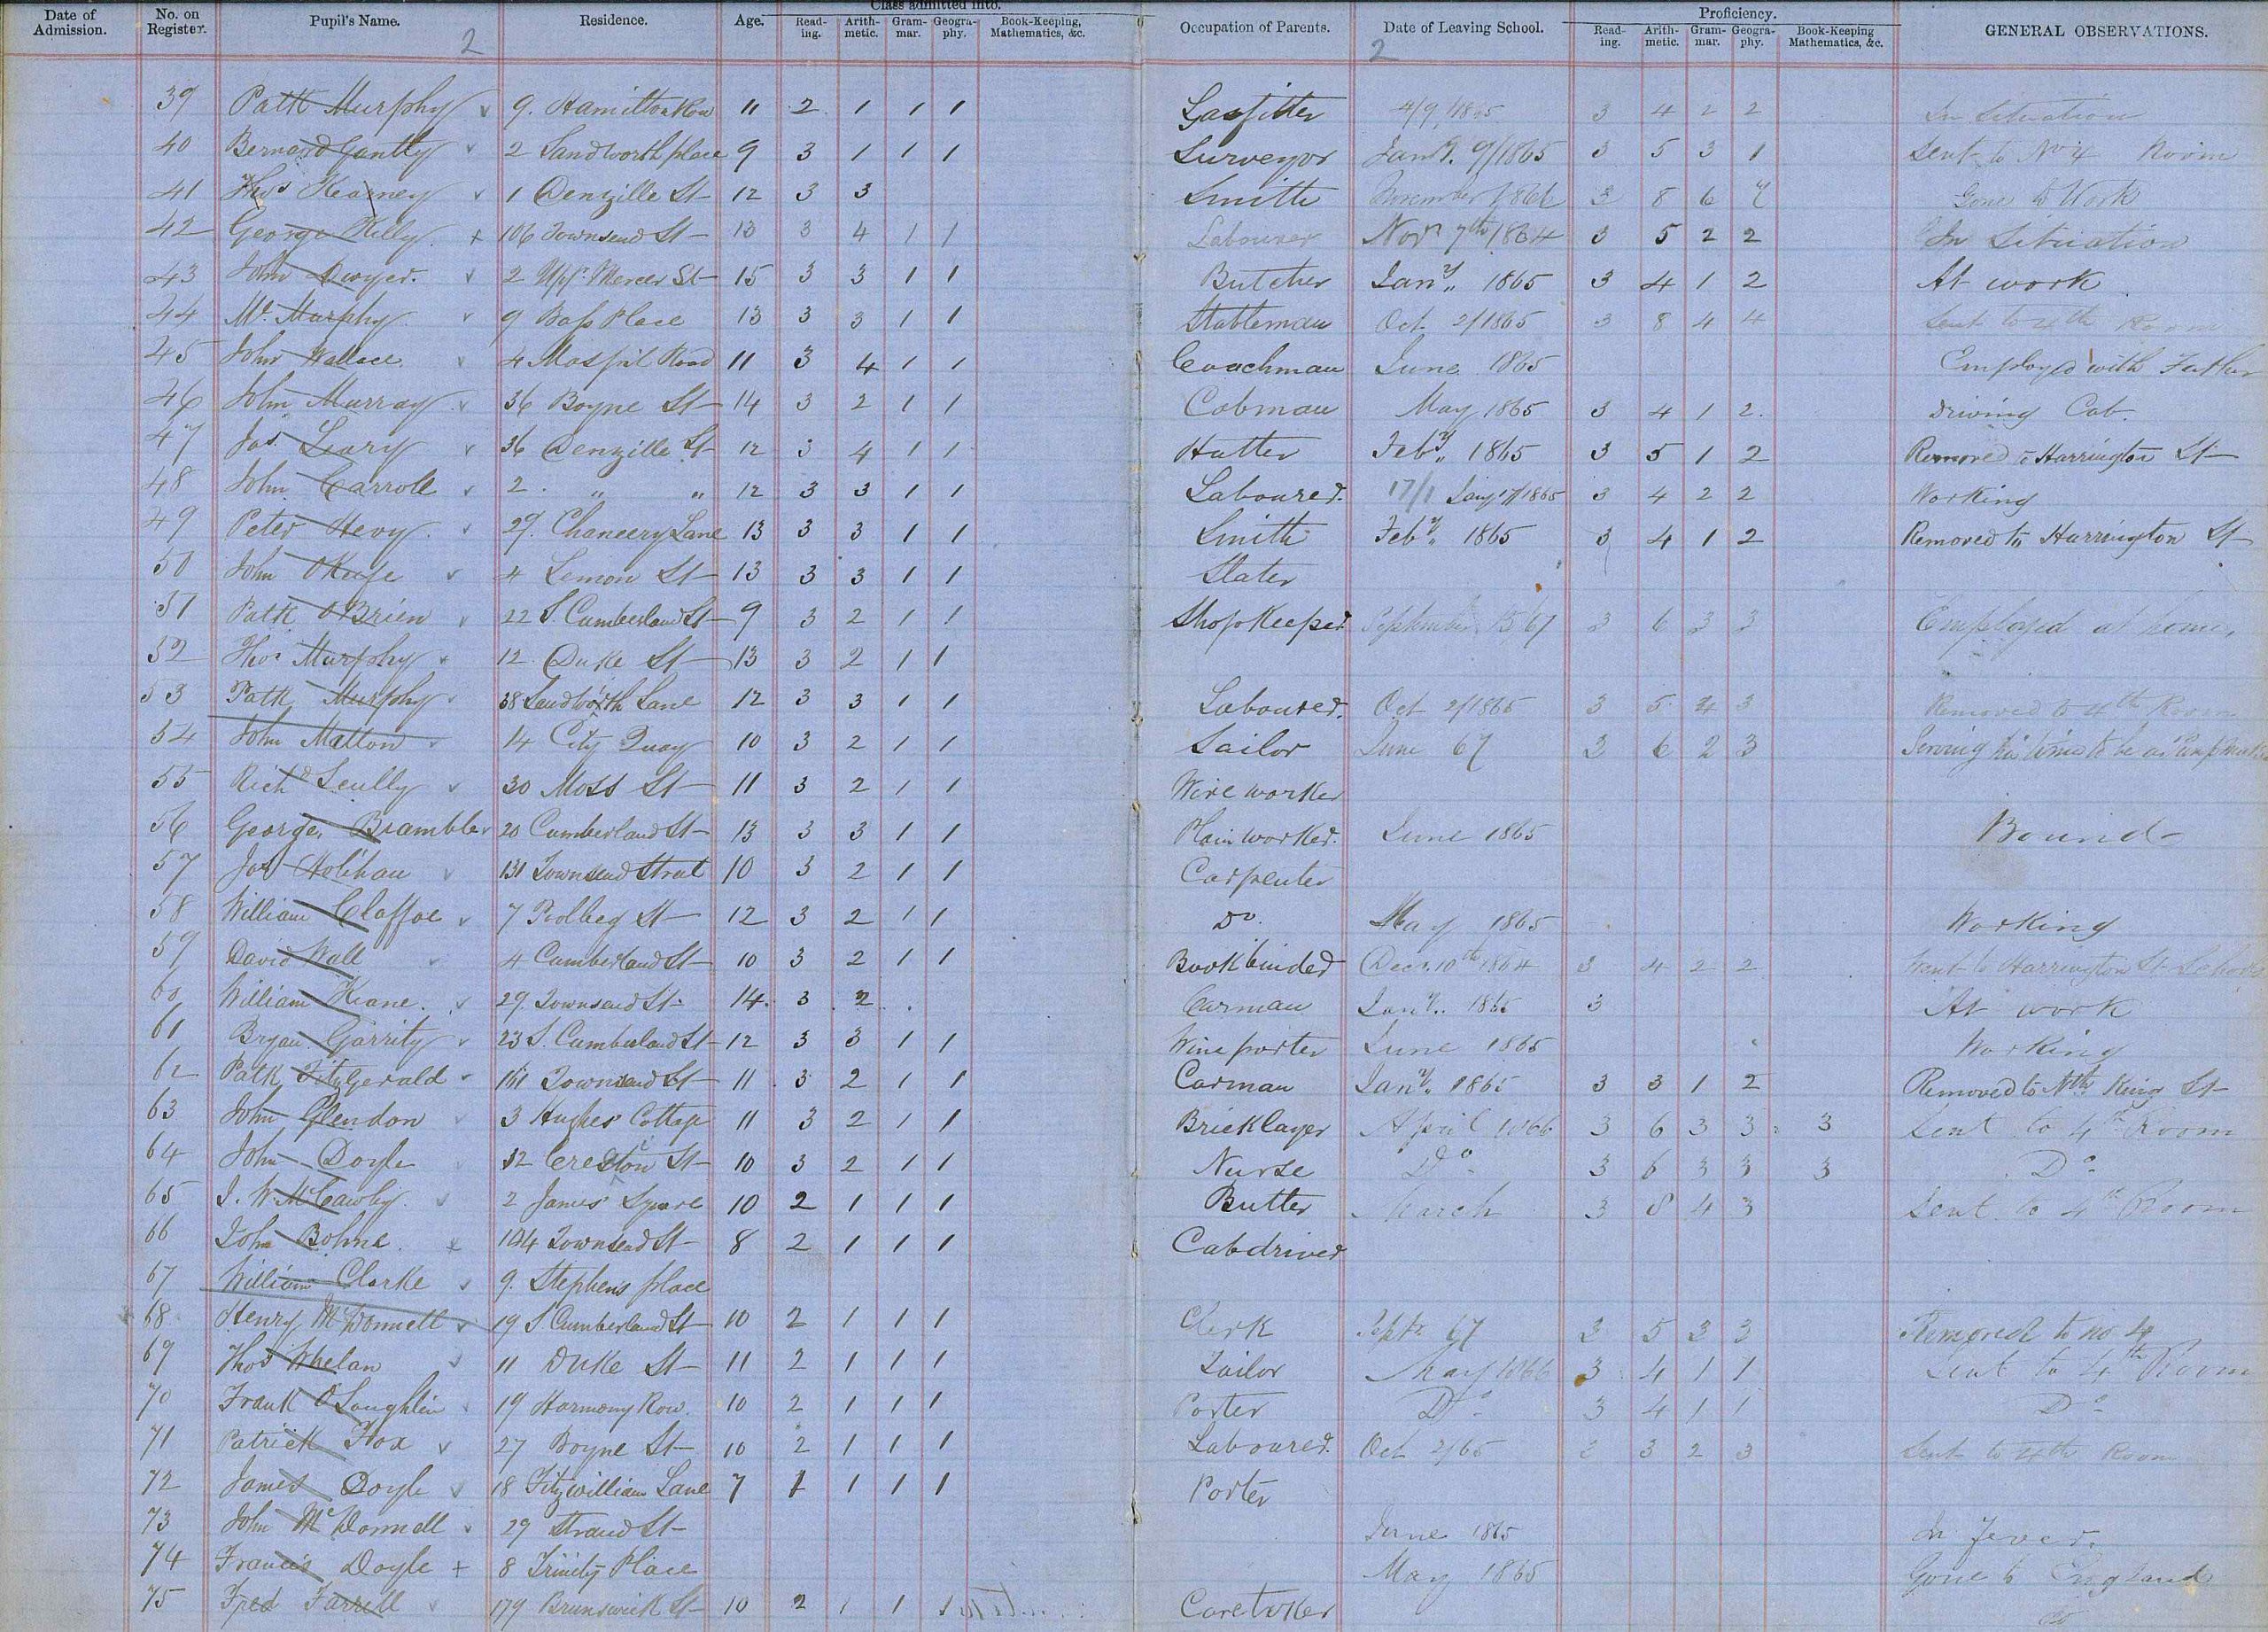 Class admitted into.
Proficiency.
Date of Admission. No. on Register. Pupil's Name. Residence. Age. Read-ing. Arith-metic. Gram-mar. Geogra-phy. Book-Keeping, Mathematics, &c. Occupation of Parents. Date of Leaving School. Read-ing. Arith-metic. Gram-mar. Geogra-phy. Book-Keeping Mathematics, &c. GENERAL OBSERVATIONS.
2 2
39 Patk Murphy 9. Hamilton Row 11 2 1 1 1 Gasfitter 4/9/1865 3 4 2 2 In Situation
40 Bernard Gantly 2 Sandworth place 9 3 1 1 1 Surveyor Jany. 9/1865 3 5 3 1 Sent to No 4 Room
41 Thos Kearney 1 Denzille St 12 3 3 Smith November 1866 3 8 6 7 Gone to Work
42 George Kelly 106 Townsend St 13 3 4 1 1 Labourer Novr 7th 1864 3 5 2 2 In Situation
43 John Dwyer. 2 Uppr Mercer St 15 3 3 1 1 Butcher Jany 1865 3 4 1 2 At work
44 Murphy 9 Bass Place 13 3 3 1 1 Stableman Oct 2/1865 3 8 4 4 Sent to 4th Room
45 John Wallace 4 Mospil Road 11 3 4 1 1 Coachman June 1865 Employed with Father
46 John Murray 36 Boyne St 14 3 2 1 1 Cabman May 1865 3 4 1 2 Driving Cab.
47 Jas Leary 36 Denzille St 12 3 4 1 1 Hatter Feby 1865 3 5 1 2 Removed to Harrington St
48 John Carroll 2 " " 12 3 3 1 1 Labourer. 17/1 Jany 17/1865 3 4 2 2 Working
49 Peter Hevy 29. Chancery Lane 13 3 3 1 1 Smith Feby 1865 3 4 1 2 Removed to Harrington St
50 John OKeefe 4 Lemon St 13 3 3 1 1 Slater
51 Patk OBrien 22 S. Cumberland St 9 3 2 1 1 Shopkeeper September 67 3 6 3 3 Employed at home.
52 Thos Murphy 12. Duke St 13 3 2 1 1
53 Patk Murphy 38 Sandwith Lane 12 3 3 1 1 Labourer. Oct 2/1865 3 5 4 3 Removed to 4th Room
54 John Mallon 14 City Quay 10 3 2 1 1 Sailor June 67 3 6 2 3 Serving his time to be a
55 Richd Scully 30 Moss St 11 3 2 1 1 Wire worker
56 George Brambler 20 Cumberland St 13 3 3 1 1 Plain worker. June 1865 Bound
57 Jos Holihan 131 Townsend Street 10 3 2 1 1 Carpenter
58 William Claffoe 7 Poolbeg St 12 3 2 1 1 Do. May 1865 Working
59 David Wall 4 Cumberland St 10 3 2 1 1 Bookbinder Decr. 10th 1864 3 4 2 2 Went to Harrington St School
60 William Keane. 29. Townsend St. 14. 3 2 Carman Jany. 1865 3 At work
61 Bryan Garrity 23 S. Cumberland St 12 3 3 1 1 Wine porter June 1865 Working
62 Patk Fitzgerald 161 Townsend St 11 3 2 1 1 Carman Jany 1865 3 3 1 2 Removed to Nth King St
63 John Glendon 3 Hughes' Cottage 11 3 2 1 1 Bricklayer April 1866 3 6 3 3 3 Sent to 4th Room
64 John Doyle 32 St 10 3 2 1 1 Nurse Do 3 6 3 3 3 Do
65 J. W. McCawley 2 James' Square 10 2 1 1 1 Butler March 3 8 4 3 Sent to 4th Room
66 John Bohne 104 Townsend St 8 2 1 1 1 Cabdriver
67 William Clarke 9. Stephens place
68 Henry McDonnell 19 S Cumberland St 10 2 1 1 1 Clerk Septr 67 3 5 3 3 Removed to no 4
69 Thos Whelan 11 Duke St 11 2 1 1 1 Tailor May 1866 3 4 1 1 Sent to 4th Room
70 Frank OLoughlin 19 Harmony Row. 10 2 1 1 1 Porter Do 3 4 1 1 Do
71 Patrick Fox 27 Boyne St 10 2 1 1 1 Labourer. Oct 2/65 3 3 2 3 Sent to 4th Room
72 James Doyle 18 Fitzwilliam Lane 7 1 1 1 1 Porter
73 John McDonnell 29 Strand St June 1865 In Fever.
74 Francis Doyle + 8 Trinity Place May 1865 Gone to England
75 Fred Farrell 179 Brunswick St 10 2 1 1 1 Caretaker do